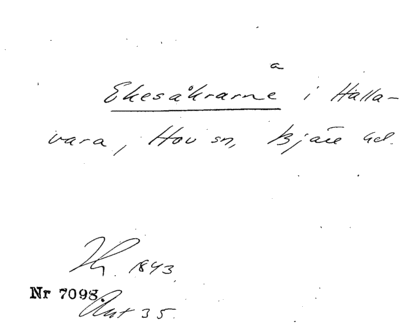 a
Ekesåkrarne i Halla-
vara, Hov sn, Bjäre hd.
1843.
Nr 7098.
35.